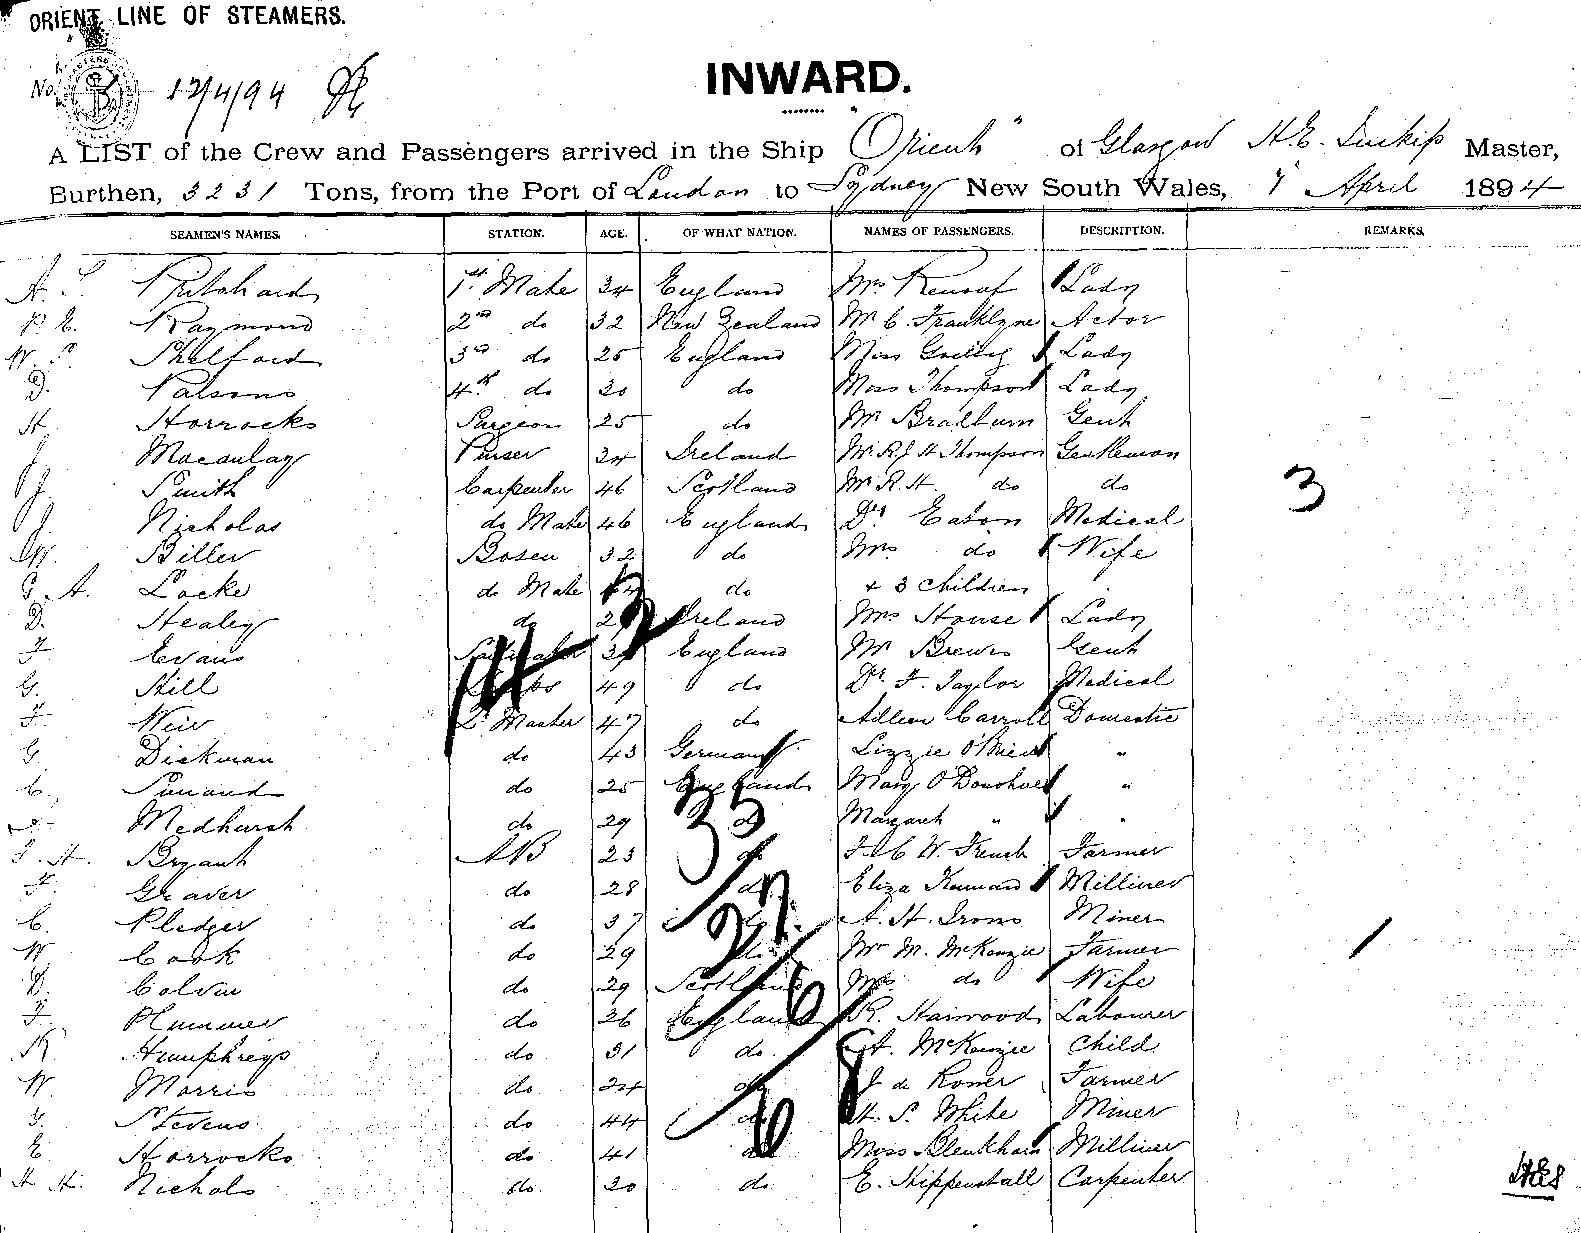 ORIENT LINE OF STEAMERS.
No. 12/4/94
INWARD.
A LIST of the Crew and Passengers arrived in the Ship "Orient" of Glasgow H.E. Inskip Master,
Burthen, 3231 Tons, from the Port of London to Sydney New South Wales, 7 April 1894
SEAMEN'S NAMES. STATION. AGE. OF WHAT NATION. NAMES OF PASSENGERS. DESCRIPTION. REMARKS.
A. Pritchard 1st Mate 34 England Mrs Renouf Lady
P. E. Raymond 2nd do 32 New Zealand Mr C. Franklyne Actor
W. Shelford 3rd do 25 England Miss Lady
D. Parsons 4th do 30 do Miss Thompson Lady
H. Horrocks Surgeon 25 do Mr Bradburn Gent
J. Macaulay Purser 34 Ireland Mr R J H Thompson Gentleman
J. Smith Carpenter 46 Scotland Mr R. H. do do 3
J. Nicholas do Mate 46 England Dr Eaton Medical
W. Biller Bosen 32 do Mrs do Wife
G. A. Locke do Mate do + 3 Children
D. Healey do Ireland Mrs House Lady
F Evans England Mr Brewis Gent
G. Hill Lamps 49 do Dr F. Taylor Medical
F. Weir Qr Master 47 do Carroll Domestic
G Dickman do 43 Germany Lizzie O'Brien "
C. do 25 England Mary O'Donohue "
Medhurst do 29 do Margaret " "
A. Bryant AB 23 do F & C W. French Farmer
F. Graver do 28 do Eliza Milliner
C. Pledger do 37 do A. H. Irons Miner
W Cook do 29 do Mr M. McKenzie Farmer
D. Colvin do 29 Scotland Mrs do Wife
F. Plummer do 26 England R. Haiwood Labourer
R Humphreys do 31 do A. McKenzie Child
W. Morris do 24 do J de Roner Farmer
G. Stevens do 44 do H. S. White Miner
E Horrocks do 41 do Miss Blenkhorn Milliner
H H. Nichols do 20 do E. Hippenstall Carpenter